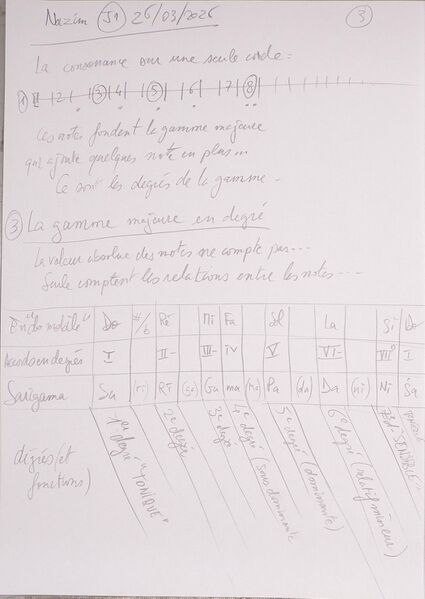 Nazim J1 26/03/2026 3
La consonance sur une seule corde =
1 | 2 | 3 4 | 5 | 6 | 7 8
Ces notes fondent la gamme majeure
qui ajoute quelques note en plus...
Ce sont les degrés de la gamme.
3 La gamme majeure en degré
La valeur absolue des notes ne compte pas...
Seule comptent les relations entre les notes...
En "do mobile" Do #/b Ré Mi Fa Sol La Si Do
Accords en degrés I II- III- IV V VI- VII° I
Sarigama Sa (ri) Ri (ga) Ga ma (ma) Pa (da) Da (ni) Ni Sa
degrés (et fonctions)
1er degré "TONIQUE"
2e degré
3e degré
4e degré (sous dominante)
5e degré (dominante)
6e degré (relatif mineur)
7e d. "SENSIBLE"